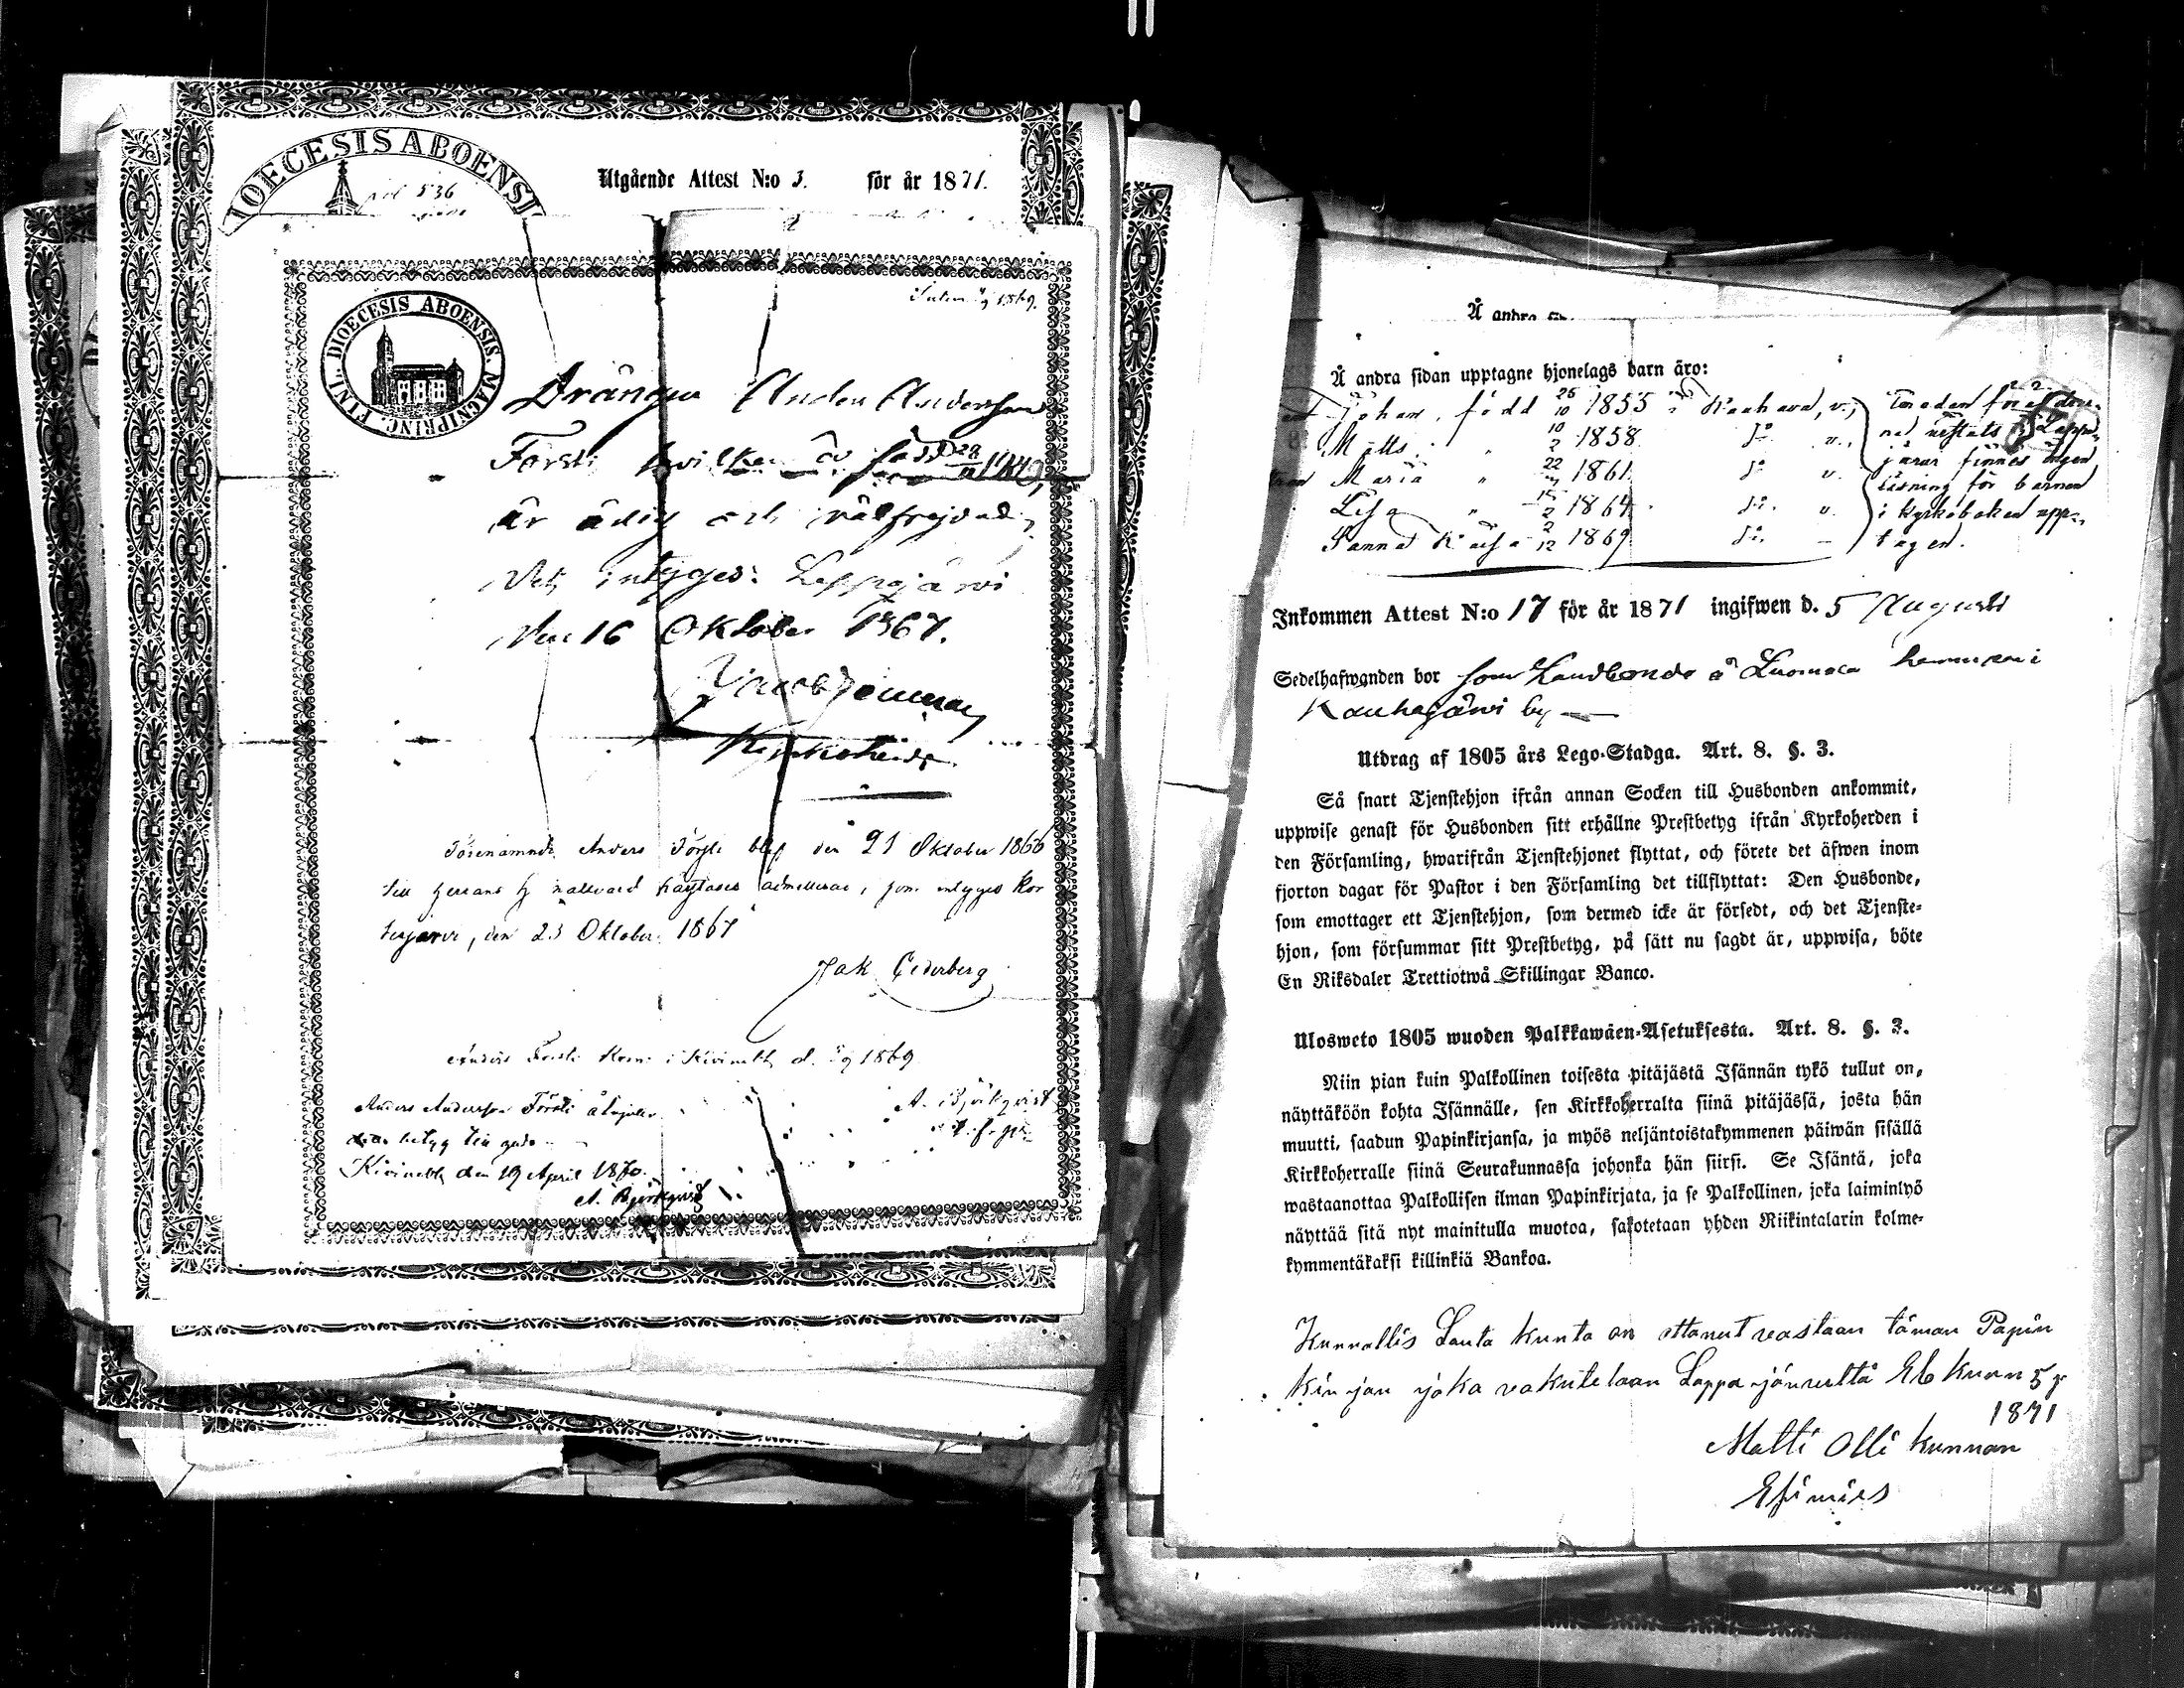 DIOECESIS ABOENSI
pol 536
Utgående Attest N:o 3. för år 1871.
1869.
DIOECESIS ABOENSIS. MAGNI PRINC. FINL.
Drängen Anders Andersson
Försti hvilken är född 28
är ledig och välfrejdad,
Det intygas: Lappajärvi
den 16 Oktober 1867.
Kyrkoherde.
Förenämnde Anders Försti blef den 21 Oktober 1866
till Herrans H. nattvard admitterad, som intygas Kor
tesjärvi, den 23 Oktober 1867
Jak Cederberg
Anders Försti Kom i Kivinebb d. 1869
Anders Andersson Försti
betyg
Kivinebb den 19 April 1870.
A. Björkqvist
Å andra
Å andra sidan upptagne hjonelags barn äro:
Johan, född 26/10 1855 Kauhava, v.,
Matts 10/2 1858 d:o v.,
Maria 22 1861. d:o v.
Lisa 15/2 1864. d:o v.
Sanna Kaisa 2/12 1869 d:o —
finnes ingen
läsning för barnen
i kyrkoboken upp-
tagen.
Inkommen Attest N:o 17 för år 1871 ingifwen d. 5 Augusti
Sedelhafwanden bor som Landbonde å Luomala hemman i
Kauhajärvi by —
Utdrag af 1805 års Lego-Stadga. Art. 8. §. 3.
Så snart Tjenstehjon ifrån annan Socken till Husbonden ankommit,
uppwise genast för Husbonden sitt erhållne Prestbetyg ifrån Kyrkoherden i
den Församling, hwarifrån Tjenstehjonet flyttat, och förete det äfwen inom
fjorton dagar för Pastor i den Församling det tillflyttat: Den Husbonde,
som emottager ett Tjenstehjon, som dermed icke är försedt, och det Tjenste-
hjon, som försummar sitt Prestbetyg, på sätt nu sagdt är, uppwisa, böte
En Riksdaler Trettiotwå Skillingar Banco.
Ulosweto 1805 wuoden Palkkawäen-Asetuksesta. Art. 8. §. 3.
Niin pian kuin Palkollinen toisesta pitäjästä Isännän tykö tullut on,
näyttäköön kohta Isännälle, sen Kirkkoherralta siinä pitäjässä, josta hän
muutti, saadun Papinkirjansa, ja myös neljäntoistakymmenen päiwän sisällä
Kirkkoherralle siinä Seurakunnassa johonka hän siirsi. Se Isäntä, joka
wastaanottaa Palkollisen ilman Papinkirjata, ja se Palkollinen, joka laiminlyö
näyttää sitä nyt mainitulla muotoa, sakotetaan yhden Riikintalarin kolme-
kymmentäkaksi killinkiä Bankoa.
Kunnallis Lauta kunta on ottanut vastaan tämän Papin
kirjan joka vakutetaan Lappajärveltä Elo kuun 5 p
1871
Matti Olli kunnan
Esimies